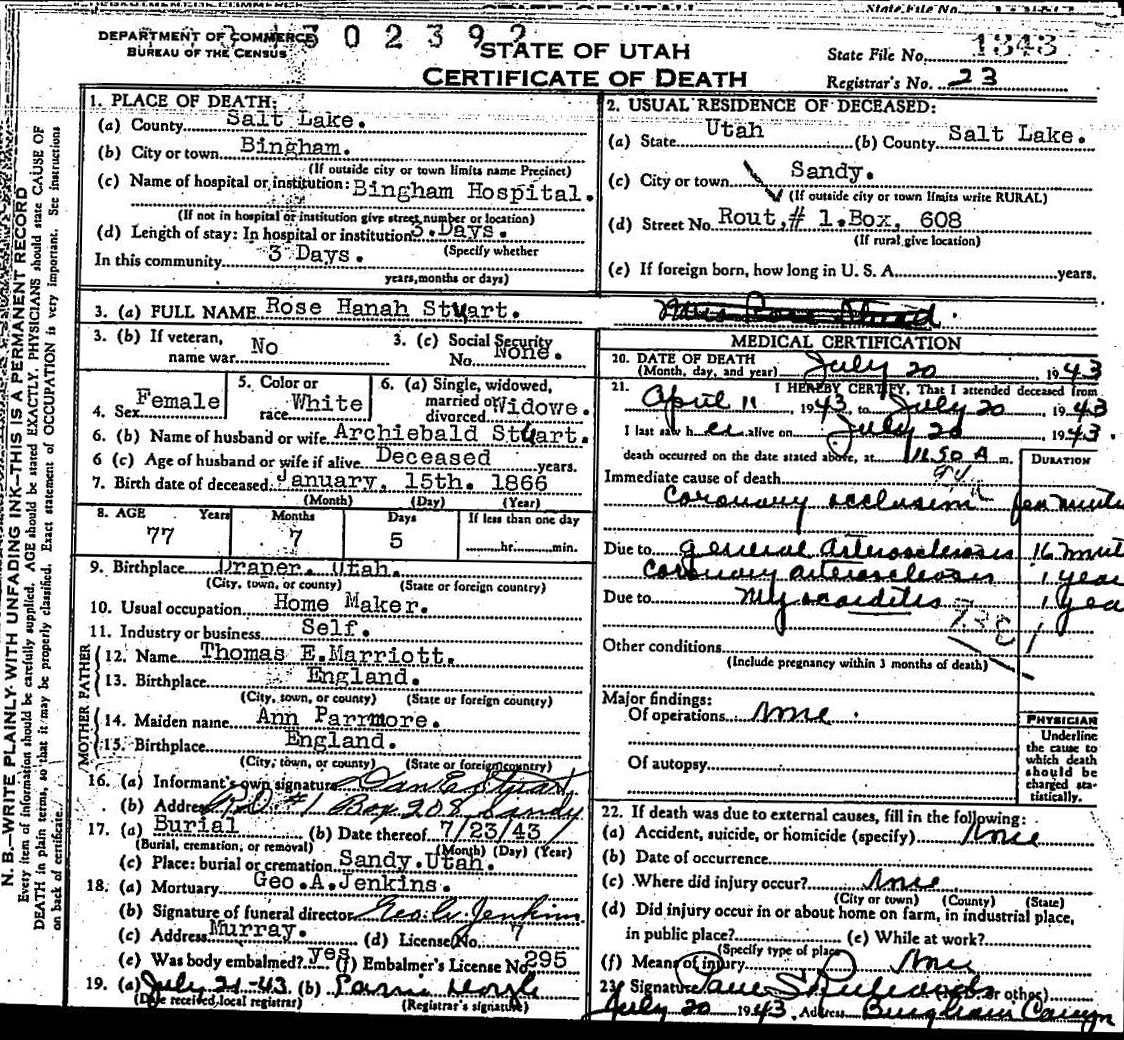 DEPARTMENT OF COMMERCE
BUREAU OF THE CENSUS
302392
STATE OF UTAH
CERTIFICATE OF DEATH
State File No. 1343
Registrar's No. 23
N. B.—WRITE PLAINLY WITH UNFADING INK—THIS IS A PERMANENT RECORD
Every item of information should be carefully supplied. AGE should be stated EXACTLY. PHYSICIANS should state CAUSE OF
DEATH in plain terms, so that it may be properly classified. Exact statement of OCCUPATION is very important. See instructions
on back of certificate.
1. PLACE OF DEATH:
(a) County Salt Lake.
(b) City or town Bingham.
(If outside city or town limits name Precinct)
(c) Name of hospital or institution: Bingham Hospital.
(If not in hospital or institution give street number or location)
(d) Length of stay: In hospital or institution 3.Days.
(Specify whether
In this community 3 Days.
years, months or days)
2. USUAL RESIDENCE OF DECEASED:
(a) State Utah (b) County Salt Lake.
(c) City or town Sandy.
(If outside city or town limits write RURAL)
(d) Street No. Rout,# 1.Box, 608
(If rural give location)
(e) If foreign born, how long in U. S. A. years.
3. (a) FULL NAME Rose Hanah Stuart.
3. (b) If veteran, name war No 3. (c) Social Security No. None.
4. Sex Female 5. Color or race White 6. (a) Single, widowed, married or divorced Widowe.
6. (b) Name of husband or wife Archiebald Stuart.
6 (c) Age of husband or wife if alive Deceased years.
7. Birth date of deceased January, 15th. 1866
(Month) (Day) (Year)
8. AGE Years Months Days If less than one day
77 7 5 hr. min.
9. Birthplace Draper. Utah.
(City, town, or county) (State or foreign country)
10. Usual occupation Home Maker.
11. Industry or business Self.
FATHER
12. Name Thomas E.Marriott.
13. Birthplace England.
(City, town, or county) (State or foreign country)
MOTHER
14. Maiden name Ann Parrmore.
15. Birthplace England.
(City, town, or county) (State or foreign country)
16. (a) Informant's own signature Dan E Stuart
(b) Address R.D. #1 Box 208 Sandy
17. (a) Burial (b) Date thereof 7/23/43
(Burial, cremation, or removal) (Month) (Day) (Year)
(c) Place: burial or cremation Sandy.Utah.
18. (a) Mortuary Geo.A.Jenkins.
(b) Signature of funeral director Geo. A. Jenkins
(c) Address Murray. (d) License No. 7
(e) Was body embalmed? yes (f) Embalmer's License No. 295
19. (a) July 21-43 (b)
(Date received local registrar) (Registrar's signature)
MEDICAL CERTIFICATION
20. DATE OF DEATH
(Month, day, and year) July 20 1943
21. I HEREBY CERTIFY, That I attended deceased from
April 11, 1943, to July 20, 1943
I last saw her alive on July 20 1943.
death occurred on the date stated above, at 11.50 A m.
DURATION
Immediate cause of death
Coronary occlusion few minute
Due to general arterosclerosis
Coronary arterosclerosis 1 year
Due to Myocarditis 1 year
Other conditions
(Include pregnancy within 3 months of death)
Major findings:
Of operations none.
Of autopsy
PHYSICIAN
Underline
the cause to
which death
should be
charged sta-
tistically.
22. If death was due to external causes, fill in the following:
(a) Accident, suicide, or homicide (specify) None
(b) Date of occurrence
(c) Where did injury occur? none
(City or town) (County) (State)
(d) Did injury occur in or about home on farm, in industrial place,
in public place? (e) While at work?
(Specify type of place)
(f) Means of injury None
23. Signature Paul S Richards (M.D. or other)
July 20 1943. Address Bingham Canyn